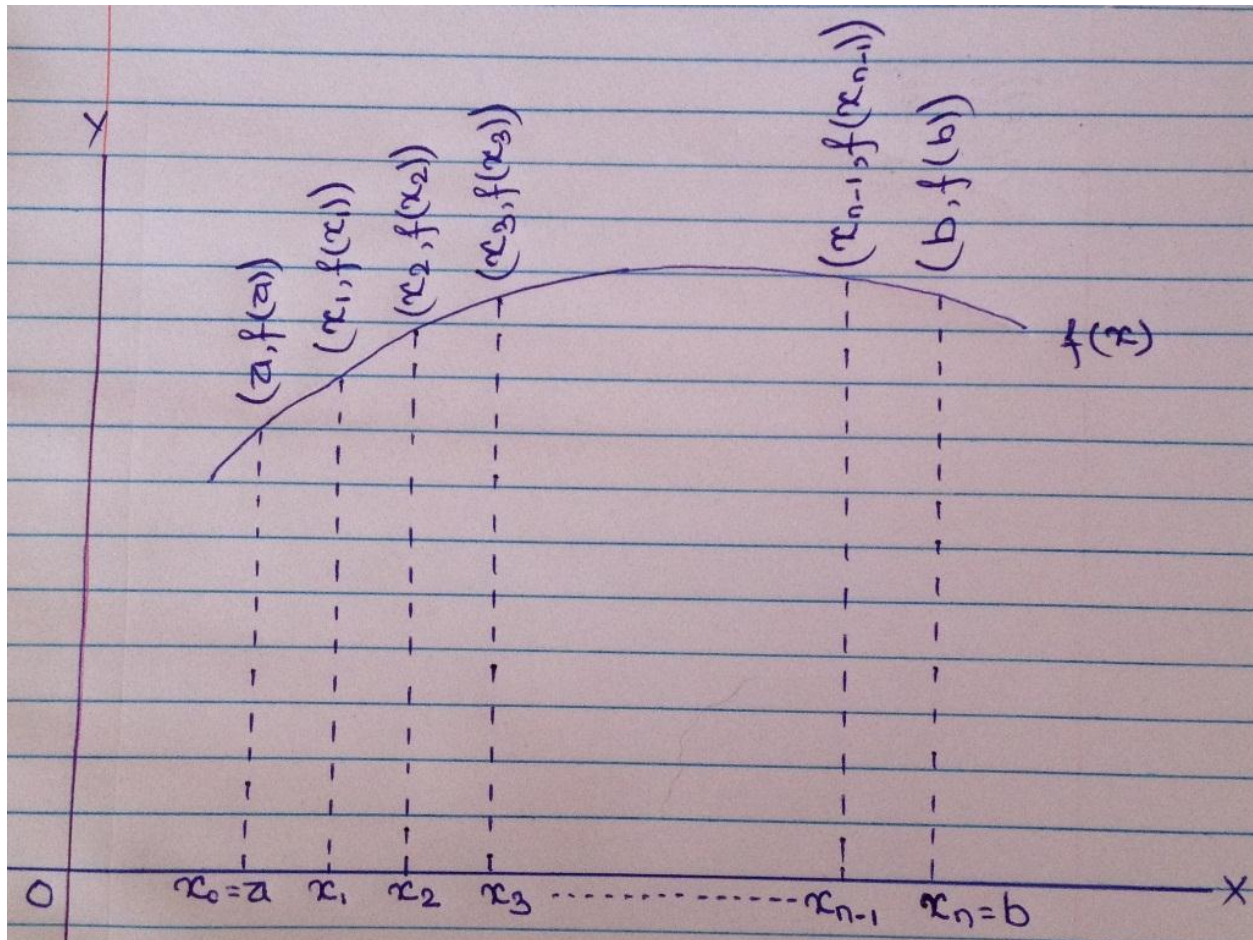 Y
(a, f(a))
(x₁, f(x₁))
(x₂, f(x₂))
(x₃, f(x₃))
(xₙ₋₁, f(xₙ₋₁))
(b, f(b))
f(x)
O
x₀ = a x₁ x₂ x₃ --------------- xₙ₋₁ xₙ = b
X